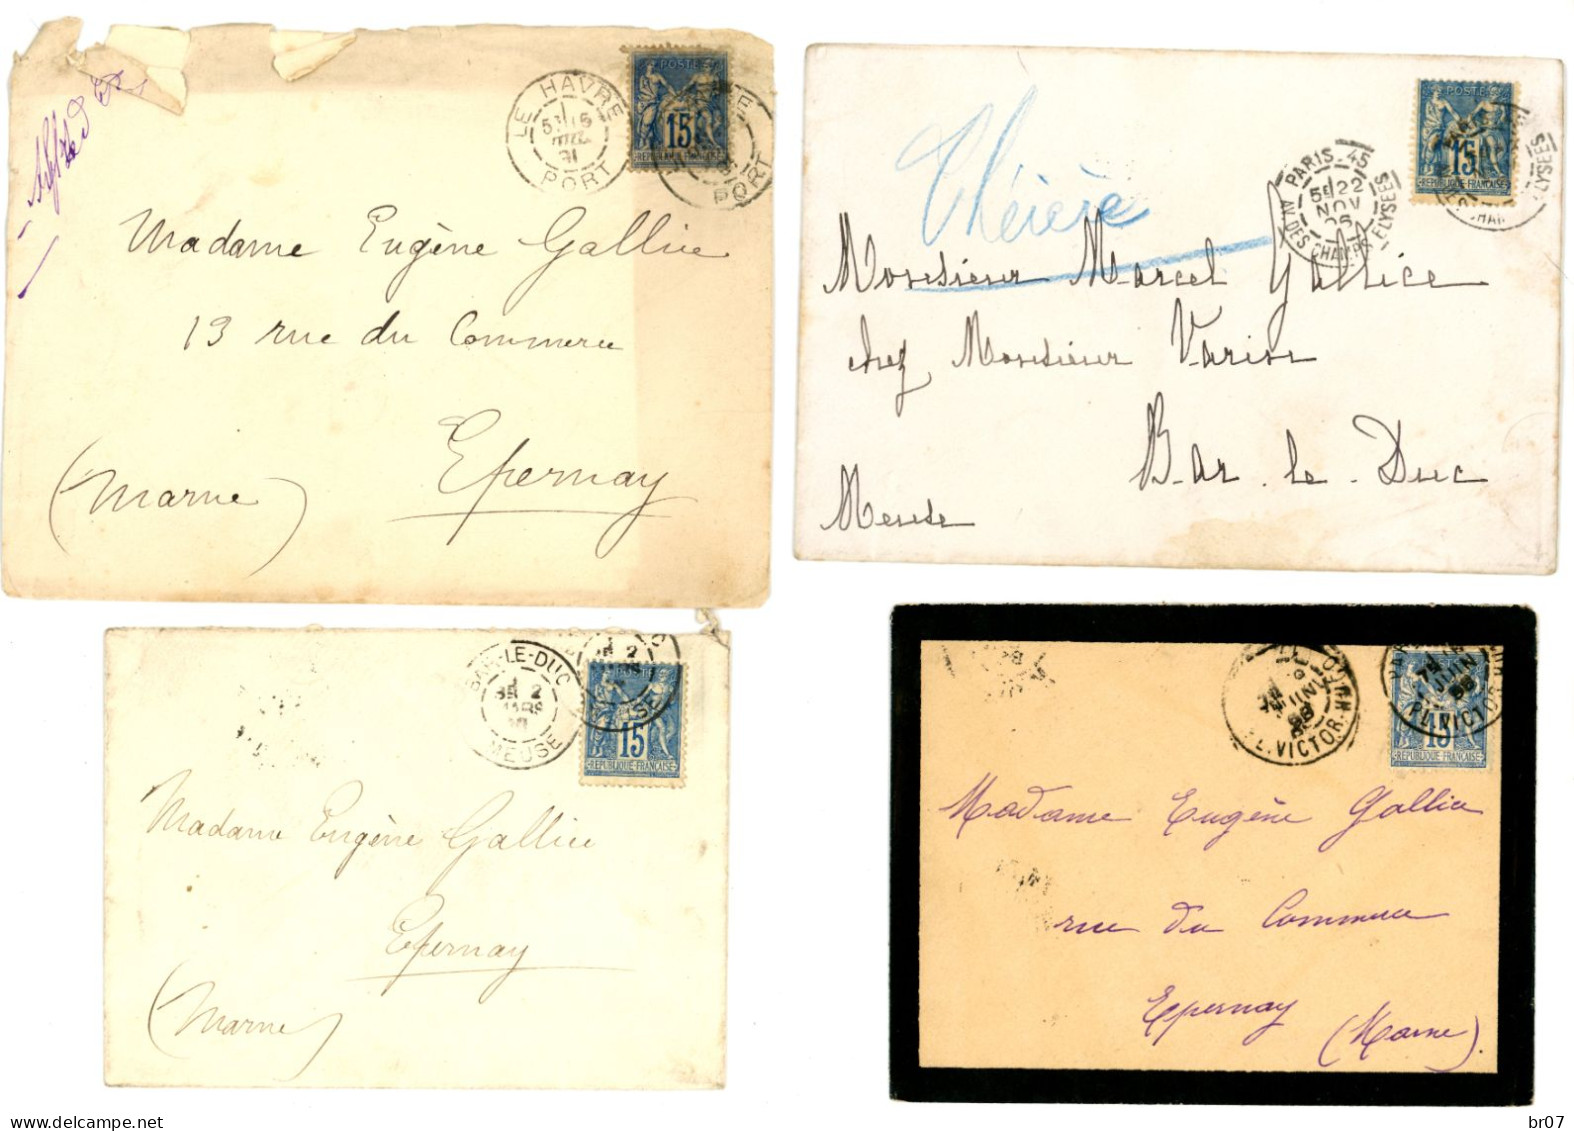 Alfred
LE HAVRE
PORT
POSTE
15
REPUBLIQUE FRANÇAISE
PORT
Madame Eugène Gallice
13 rue du Commerce
Epernay
(Marne)
PARIS. 45
5E 22
NOV
AV. DES CHAMPS ELYSEES
POSTE
15
REPUBLIQUE
PARIS
ELYSEES
Monsieur Marcel Gallice
chez Monsieur Varin
Bar. le. Duc
Meuse
BAR-LE-DUC
8E 2
MARS
MEUSE
2
POSTE
15
REPUBLIQUE FRANÇAISE
Madame Eugène Gallice
Epernay
(Marne)
JUIN
98
PL. VICTOR HUGO
JUIN
98
PL. VICTOR
15
REPUBLIQUE FRANÇAISE
Madame Eugène Gallice
rue du Commerce
Epernay
(Marne).
delcampe.net
br07